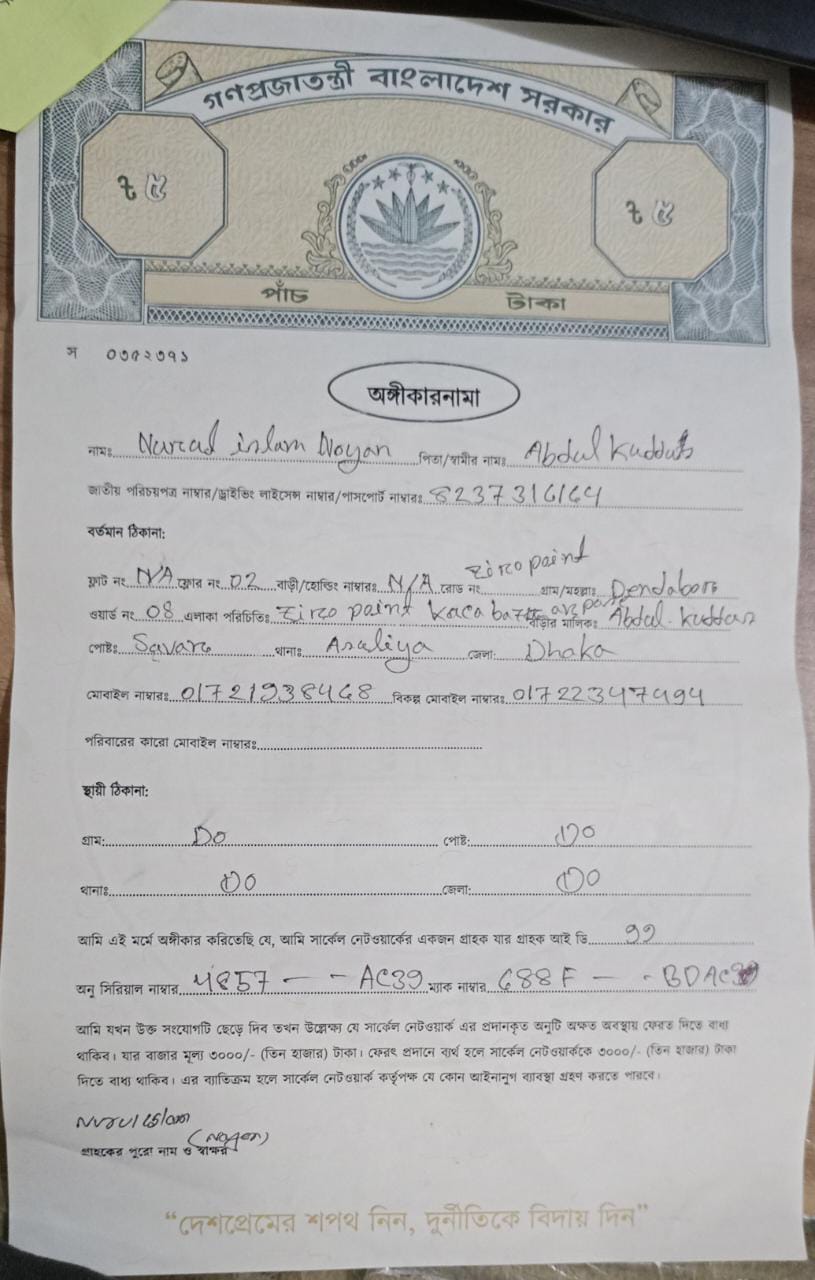 গণপ্রজাতন্ত্রী বাংলাদেশ সরকার
৳ ৫ ৳ ৫
পাঁচ টাকা
স ০৩৫২৩৭১
অঙ্গীকারনামা
নামঃ Islam Noyan পিতা/স্বামীর নামঃ Abdul Kuddus
জাতীয় পরিচয়পত্র নাম্বার/ড্রাইভিং লাইসেন্স নাম্বার/পাসপোর্ট নাম্বারঃ 8237316164
বর্তমান ঠিকানা:
ফ্লাট নং N/A ফ্লোর নং 02 বাড়ী/হোল্ডিং নাম্বারঃ N/A রোড নং Ziro paint গ্রাম/মহল্লাঃ Dendabor
ওয়ার্ড নং 08 এলাকা পরিচিতিঃ Ziro paint Kaca bazar বাড়ীর মালিকঃ Abdul Kuddas
পোষ্টঃ Savar থানাঃ Asaliya জেলা: Dhaka
মোবাইল নাম্বারঃ 01721938468 বিকল্প মোবাইল নাম্বারঃ 01722347494
পরিবারের কারো মোবাইল নাম্বারঃ
স্থায়ী ঠিকানা:
গ্রাম: Do পোষ্ট: Do
থানাঃ Do জেলা: Do
আমি এই মর্মে অঙ্গীকার করিতেছি যে, আমি সার্কেল নেটওয়ার্কের একজন গ্রাহক যার গ্রাহক আই ডি 99
অনু সিরিয়াল নাম্বার 4857 - - AC39 ম্যাক নাম্বার 688F - - BDAC39
আমি যখন উক্ত সংযোগটি ছেড়ে দিব তখন উল্লেক্ষ্য যে সার্কেল নেটওয়ার্ক এর প্রদানকৃত অনুটি অক্ষত অবস্থায় ফেরত দিতে বাধ্য
থাকিব। যার বাজার মূল্য ৩০০০/- (তিন হাজার) টাকা। ফেরৎ প্রদানে ব্যর্থ হলে সার্কেল নেটওয়ার্ককে ৩০০০/- (তিন হাজার) টাকা
দিতে বাধ্য থাকিব। এর ব্যতিক্রম হলে সার্কেল নেটওয়ার্ক কর্তৃপক্ষ যে কোন আইনানুগ ব্যবস্থা গ্রহণ করতে পারবে।
Nurul Islam
(Noyon)
গ্রাহকের পুরো নাম ও স্বাক্ষর
“দেশপ্রেমের শপথ নিন, দুর্নীতিকে বিদায় দিন”